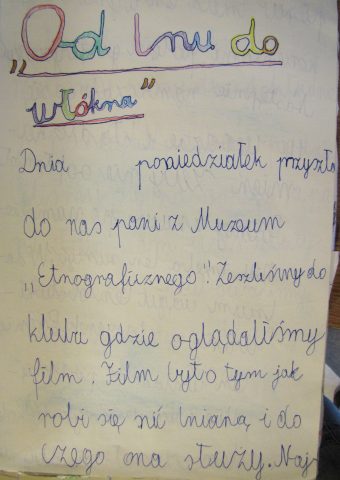 "Od lnu do
włókna"
Dnia poniedziałek przyszła
do nas pani z Muzeum
„Etnograficznego". Zeszliśmy do
klubu gdzie oglądaliśmy
film. Film był o tym jak
robi się nić lnianą i do
czego ona służy. Naj-